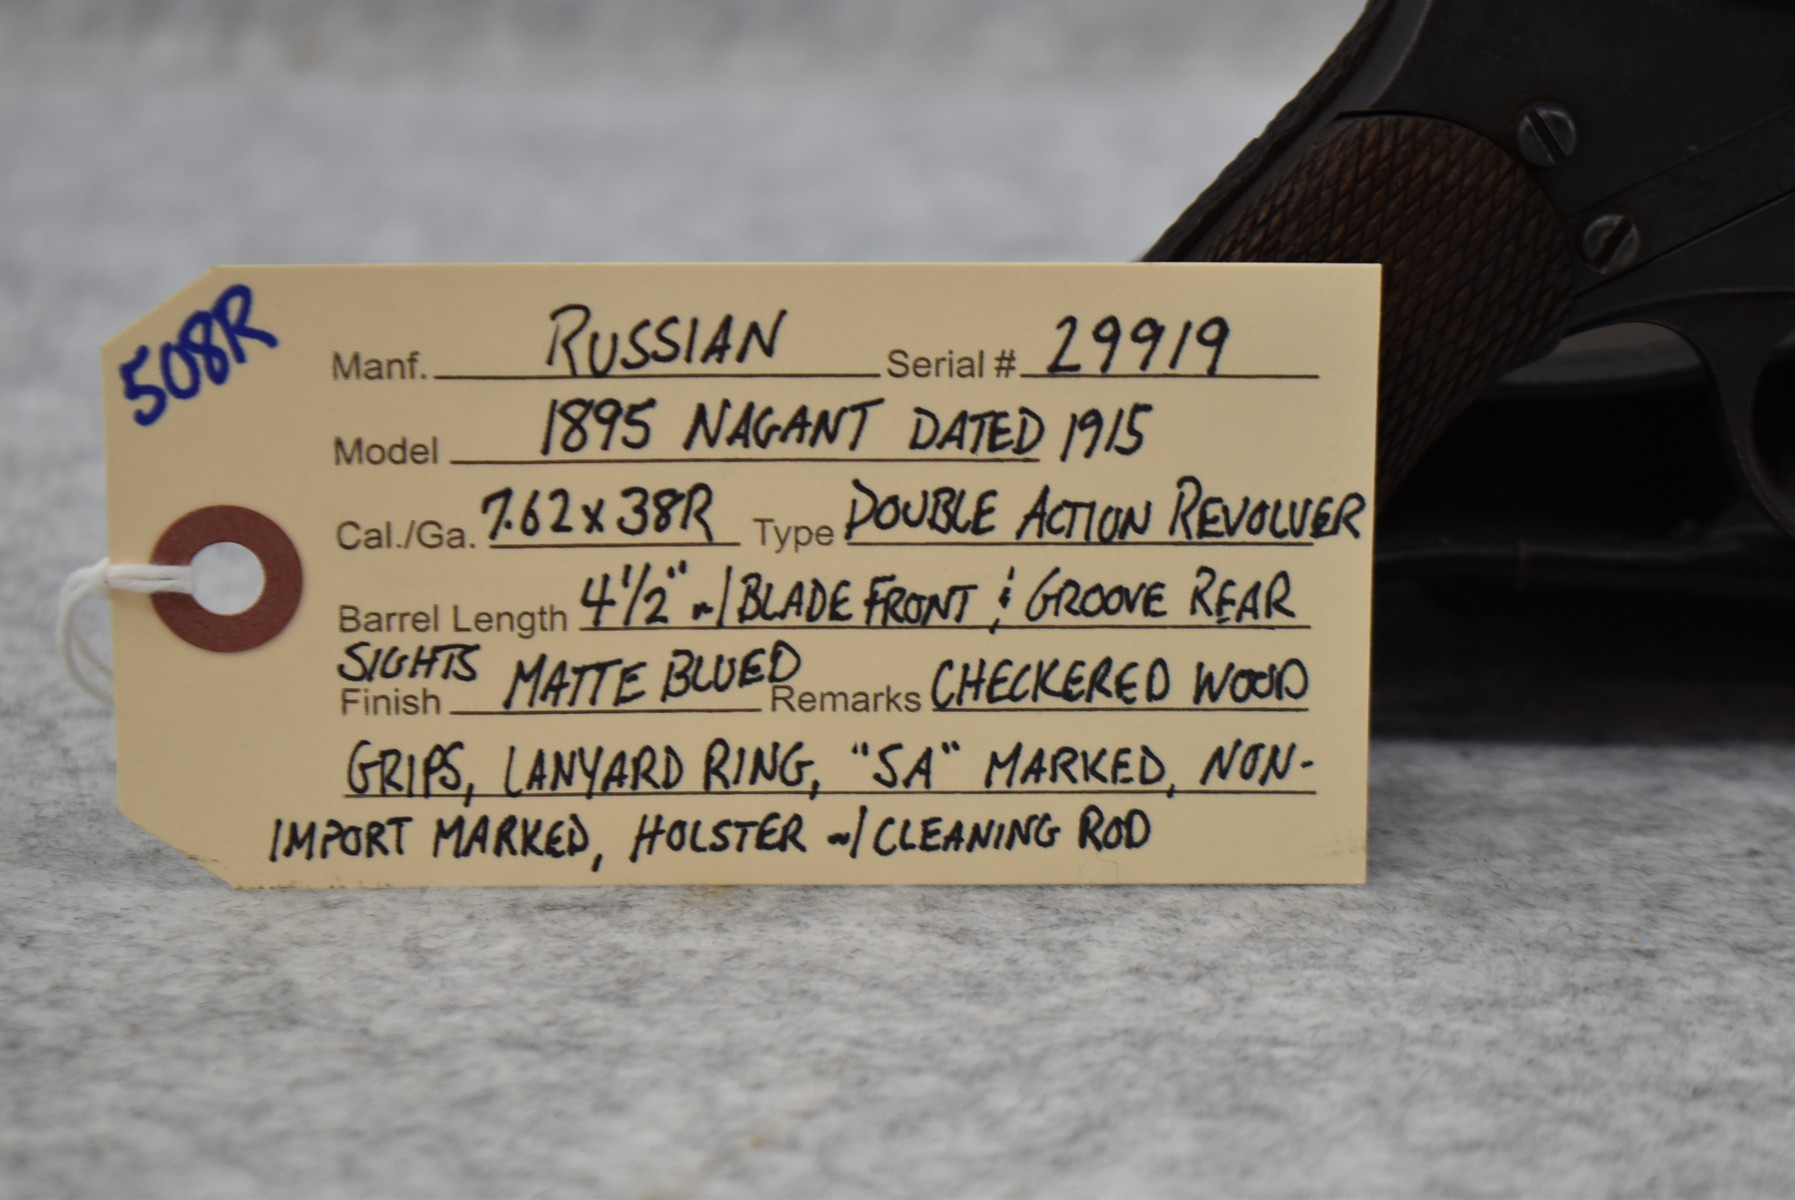 508R
Manf. RUSSIAN Serial # 29919
Model 1895 NAGANT DATED 1915
Cal./Ga. 7.62x38R Type DOUBLE ACTION REVOLVER
Barrel Length 4 1/2" w/ BLADE FRONT & GROOVE REAR
SIGHTS
Finish MATTE BLUED Remarks CHECKERED WOOD
GRIPS, LANYARD RING, "SA" MARKED, NON-
IMPORT MARKED, HOLSTER w/ CLEANING ROD